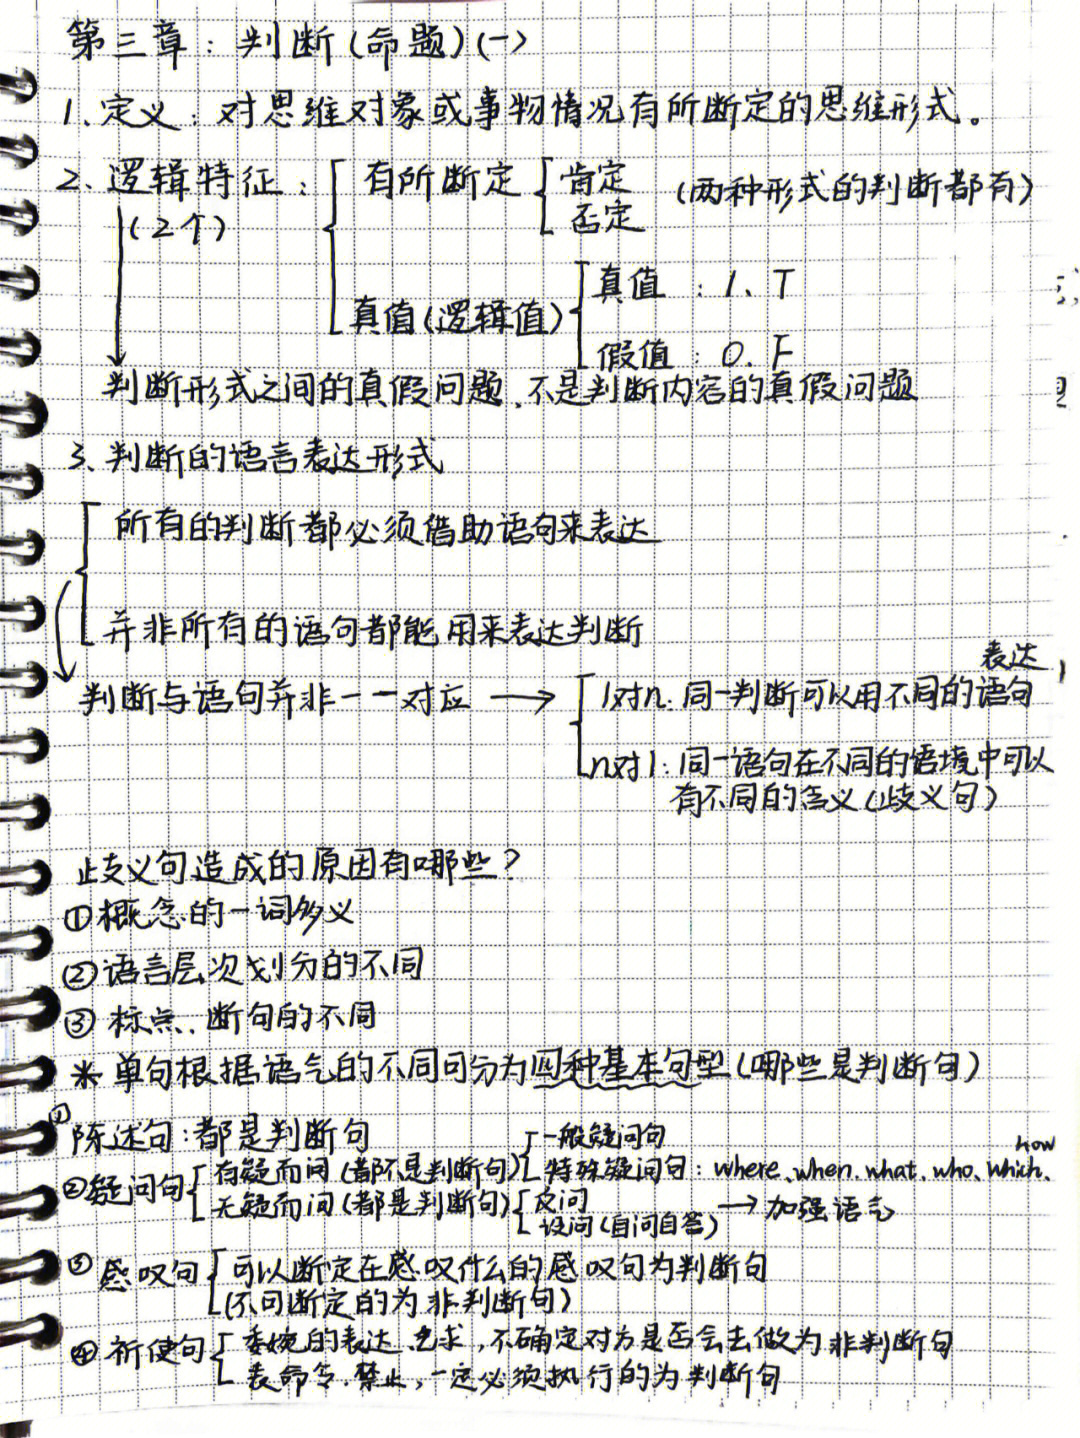 第三章：判断(命题)(一)
1、定义：对思维对象或事物情况有所断定的思维形式。
2、逻辑特征：有所断定 肯定 (两种形式的判断都有)
(2个) 否定
真值(逻辑值) 真值：1、T
假值：0、F
判断形式之间的真假问题、不是判断内容的真假问题
3、判断的语言表达形式
所有的判断都必须借助语句来表达
并非所有的语句都能用来表达判断
判断与语句并非一一对应 → 1对n：同一判断可以用不同的语句表达
n对1：同一语句在不同的语境中可以
有不同的含义(歧义句)
歧义句造成的原因有哪些？
①概念的一词多义
②语言层次划分的不同
③标点、断句的不同
*单句根据语气的不同可分为四种基本句型(哪些是判断句)
①陈述句：都是判断句
②疑问句 有疑而问(都不是判断句) 一般疑问句
特殊疑问句：where、when、what、who、which、how
无疑而问(都是判断句) 反问
设问(自问自答) → 加强语气
③感叹句 可以断定在感叹什么的感叹句为判断句
(不可断定的为非判断句)
④祈使句 委婉的表达、乞求，不确定对方是否会去做为非判断句
表命令、禁止，一定必须执行的为判断句